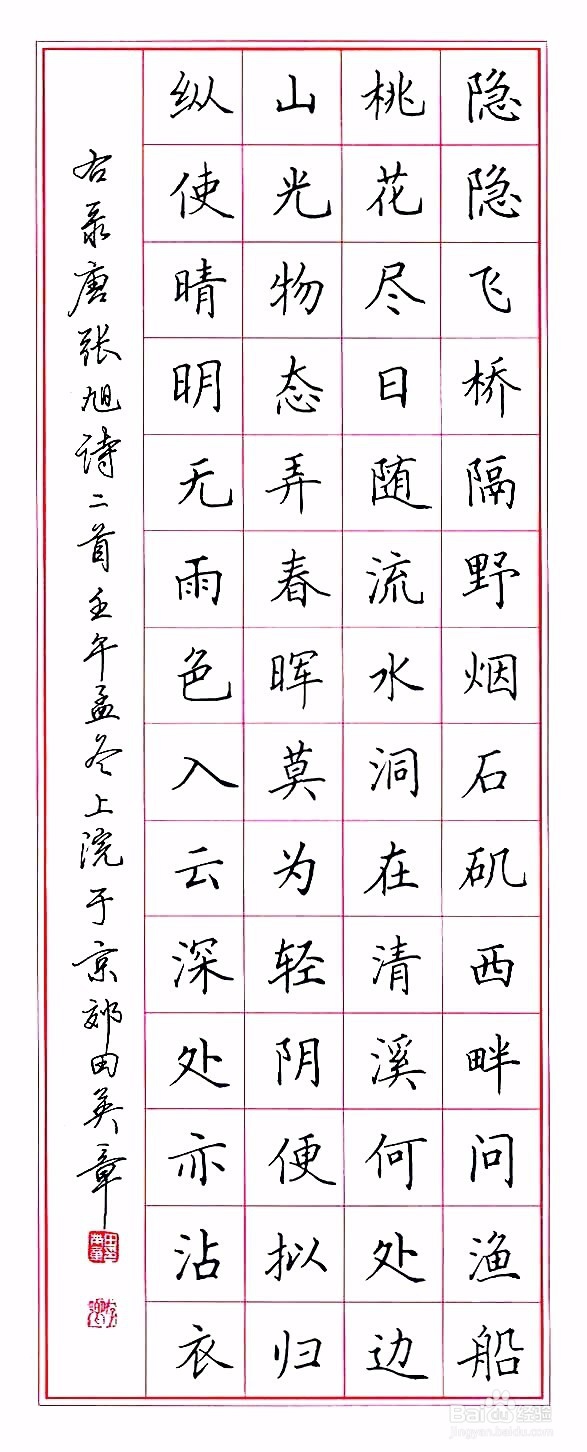 隐隐飞桥隔野烟石矶西畔问渔船
桃花尽日随流水洞在清溪何处边
山光物态弄春晖莫为轻阴便拟归
纵使晴明无雨色入云深处亦沾衣
右录唐张旭诗二首壬午孟冬上浣于京郊田英章
Baidu经验
jingyan.baidu.com